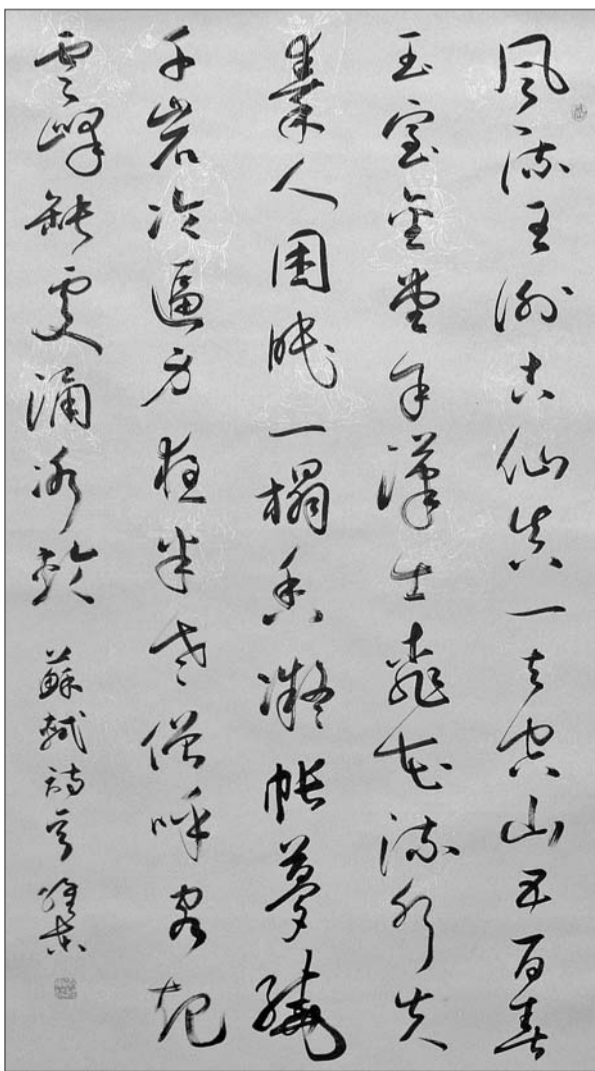 風流王謝古仙真一去空山五百春
玉室金堂余漢士桃花流水失
秦人困眠一榻香凝帳夢繞
千岩冷逼身夜半老僧呼客起
雲峰缺處涌冰輪 蘇軾詩